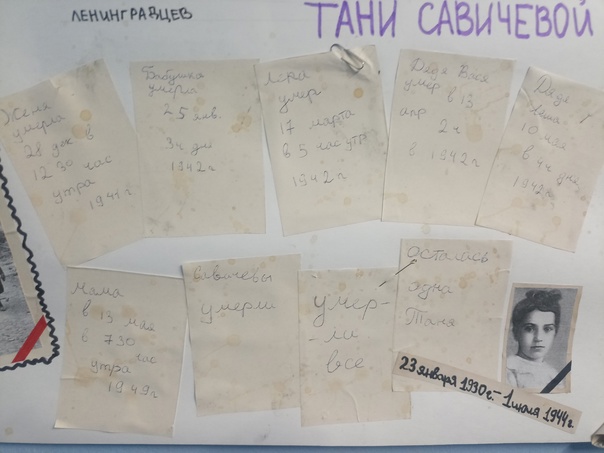 ЛЕНИНГРАДЦЕВ
ТАНИ САВИЧЕВОЙ
Женя
умерла
28 дек в
12 30 час
утра
1941 г
Бабушка
умерла
25 янв.
3ч дня
1942 г
Лёка
умер
17 марта
в 5 час утр
1942 г
Дядя Вася
умер в 13
апр 2ч
в 1942 г
Дядя
Лёша
10 мая
в 4ч дня
1942 г
Мама
в 13 мая
в 730
час
утра
1942 г
Савичевы
умерли
умер-
-ли
все
осталась
одна
Таня
23 января 1930 г.- 1 июля 1944 г.